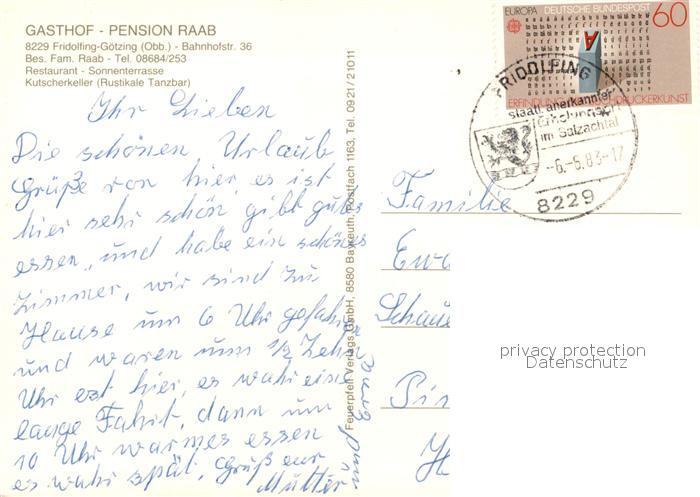 GASTHOF - PENSION RAAB
8229 Fridolfing-Götzing (Obb.) - Bahnhofstr. 36
Bes. Fam. Raab - Tel. 08684/253
Restaurant - Sonnenterrasse
Kutscherkeller (Rustikale Tanzbar)
Ihr Lieben
Die schönen Urlaub
Grüße von hier, es ist
hier sehr schön, gibt gutes
essen, und habe ein schönes
Zimmer, wir sind zu
Hause um 6 Uhr gefahren
und waren um 1/2 Zehn
Uhr erst hier, es wahr eine
lange Fahrt, dann um
10 Uhr warmes essen
es wahr spät, Grüß eur
Mutter und
Feuerpfeil Verlags GmbH, 8580 Bayreuth, Postfach 1163, Tel. 09 21 / 2 10 11
EUROPA DEUTSCHE BUNDESPOST
60
A
FRIDOLFING
staatl. anerkannter
Erholungsort
im Salzachtal
-6.-6.83-17
8229
Familie
Ewa
Schaus
Pir
privacy protection
Datenschutz